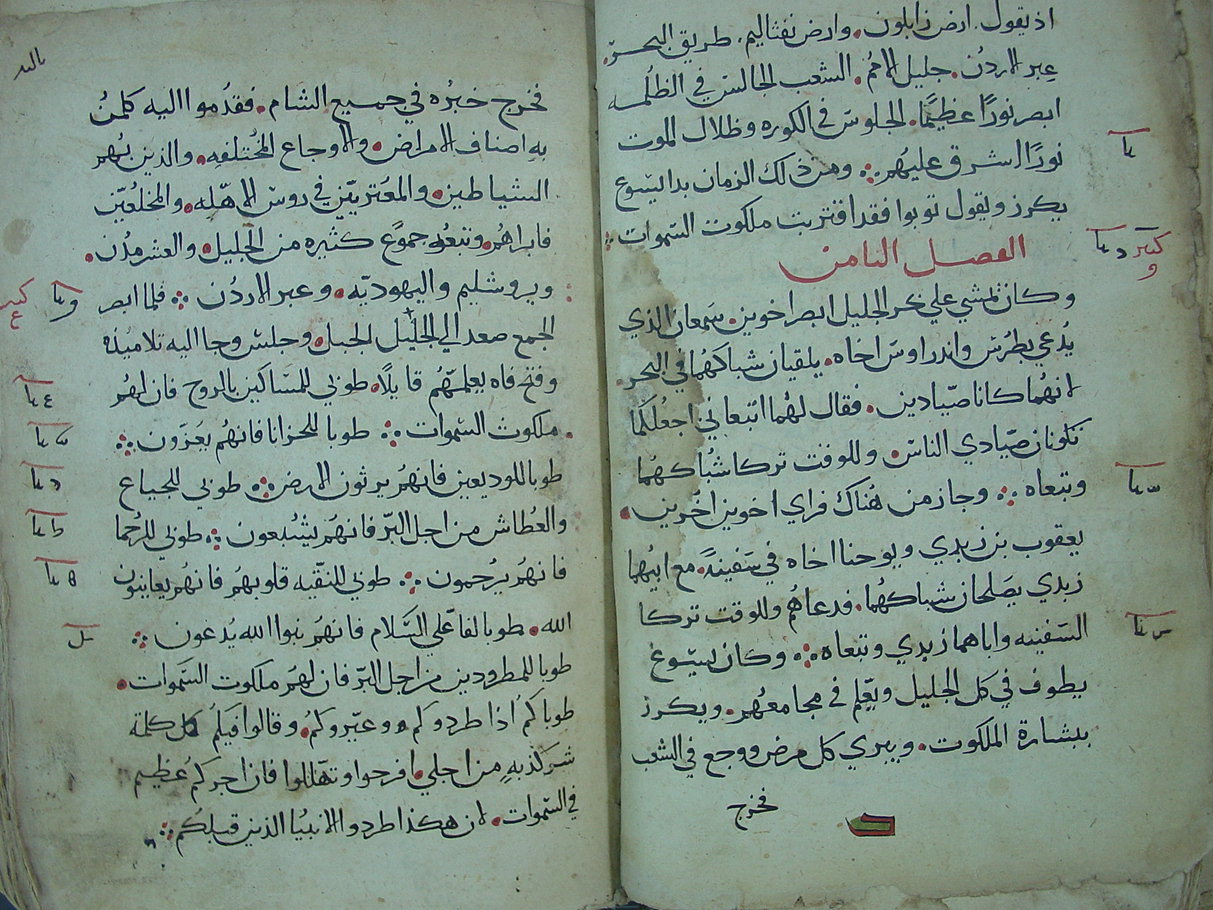 اذ يقول. ارض زابلون. وارض نفتاليم. طريق البحر.
عبر الاردن. جليل الامم. الشعب الجالس في الظلمه
ابصر نورًا عظيمًا. الجلوس في الكوره وظلال الموت
نورًا اشرق عليهم. ومن ذلك الزمان بدا يسوع
يكرز ويقول توبوا فقد اقتربت ملكوت السموات
الفصل الثامن
وكان يمشي علي بحر الجليل ابصر اخوين. سمعان الذي
يُدعي بطرس واندراوس اخاه. يلقيان شباكهما في البحر
لانهما كانا صيّادين. فقال لهما اتبعاني اجعلكما
تكونان صيّادي الناس. وللوقت تركا شباكهما
وتبعاه. وجاز من هُناك فراي اخوين اخرين.
يعقوب بن زبدي ويوحنا اخاه في سفينة. مع ابيهما
زبدي يصلحان شباكهما. فدعاهم وللوقت تركا
السفينه واباهما زبدي وتبعاه. وكان يسوع
يطوف في كل الجليل ويعّلم في مجامعهم. ويكرز
ببشارة الملكوت. ويبري كل مرض ووجع في الشعب
فخرج
فخرج خبرُه في جميع الشام. فقدموا اليه كلمن
به اصناف الامراض. والاوجاع المختلفه. والذين بهم
الشياطين. والمعتريّين في روس الاهّله. والمخلعّين
فابراهم. وتبعه جموع كثيره من الجليل. والعشر مدن.
ويروشليم واليهوديه. وعبر الاردن. فلما ابصر
الجمع صعد الي الجليل الجبل. وجلس وجا اليه تلاميذه
وفتح فاه يعلمهم قايلًا. طوبي للمساكين بالروح فان لهم
ملكوت السموات. طوبا للحزانا فانهم يعزون.
طوبا للوديعين فانهم يرثون الارض. طوبي للجياع
والعُطاش من اجل البرّ فانهم يشبعون. طوبي للرُحما
فانهم يرحمون. طوبي للنقيه قلوبهم فانهم يعاينون
الله. طوبا لفاعلي السّلام فانهم بنوا الله يُدعون.
طوبا للمطرودين من اجل البرّ فان لهم ملكوت السّموات.
طوباكم اذا طردوكم وعيّروكم. وقالوا فيكم كل كلمة
شر كذبه من اجلي. افرحوا وتهاللوا فان اجركم عظيم
في السّموات. لان هكذا طردوا الانبيا الذين قبلكم